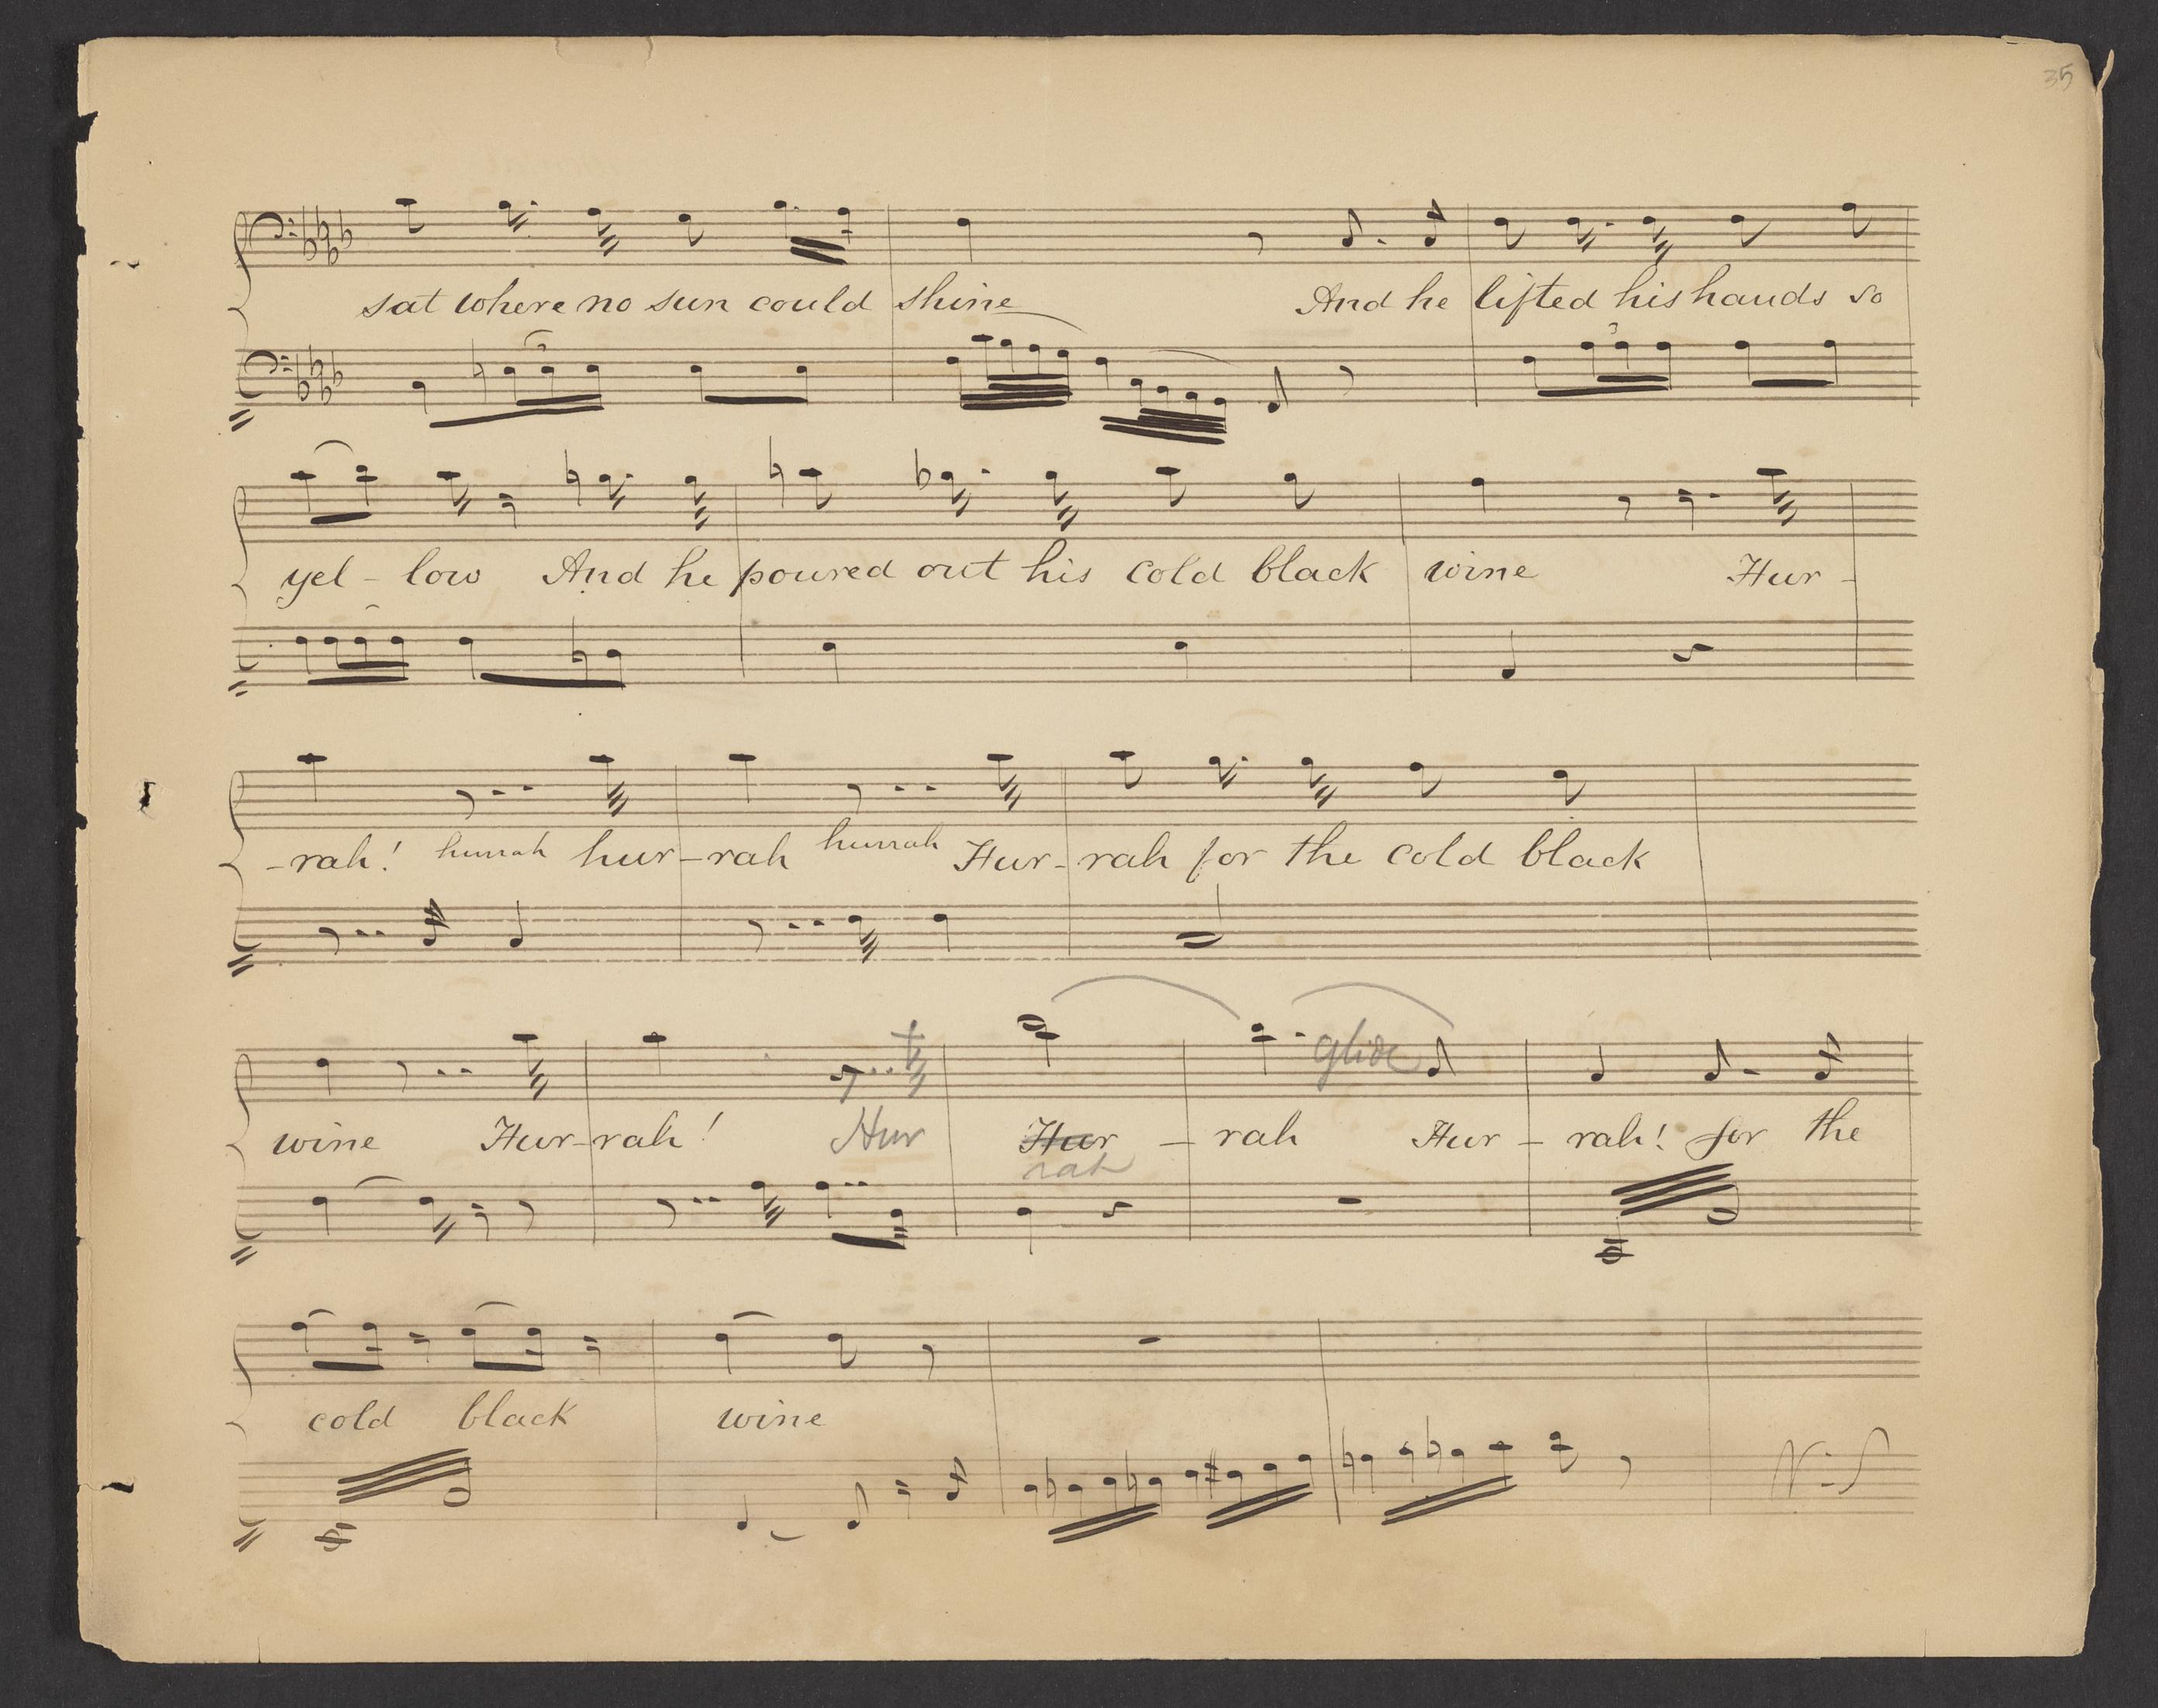 35
sat where no sun could shine And he lifted his hands so
3
3
yel - low And he poured out his cold black wine Hur -
- rah! hurrah hur - rah hurrah Hur - rah for the cold black
glide
wine Hur - rah! Hur Hur - rah Hur - rah! for the
rah
cold black wine